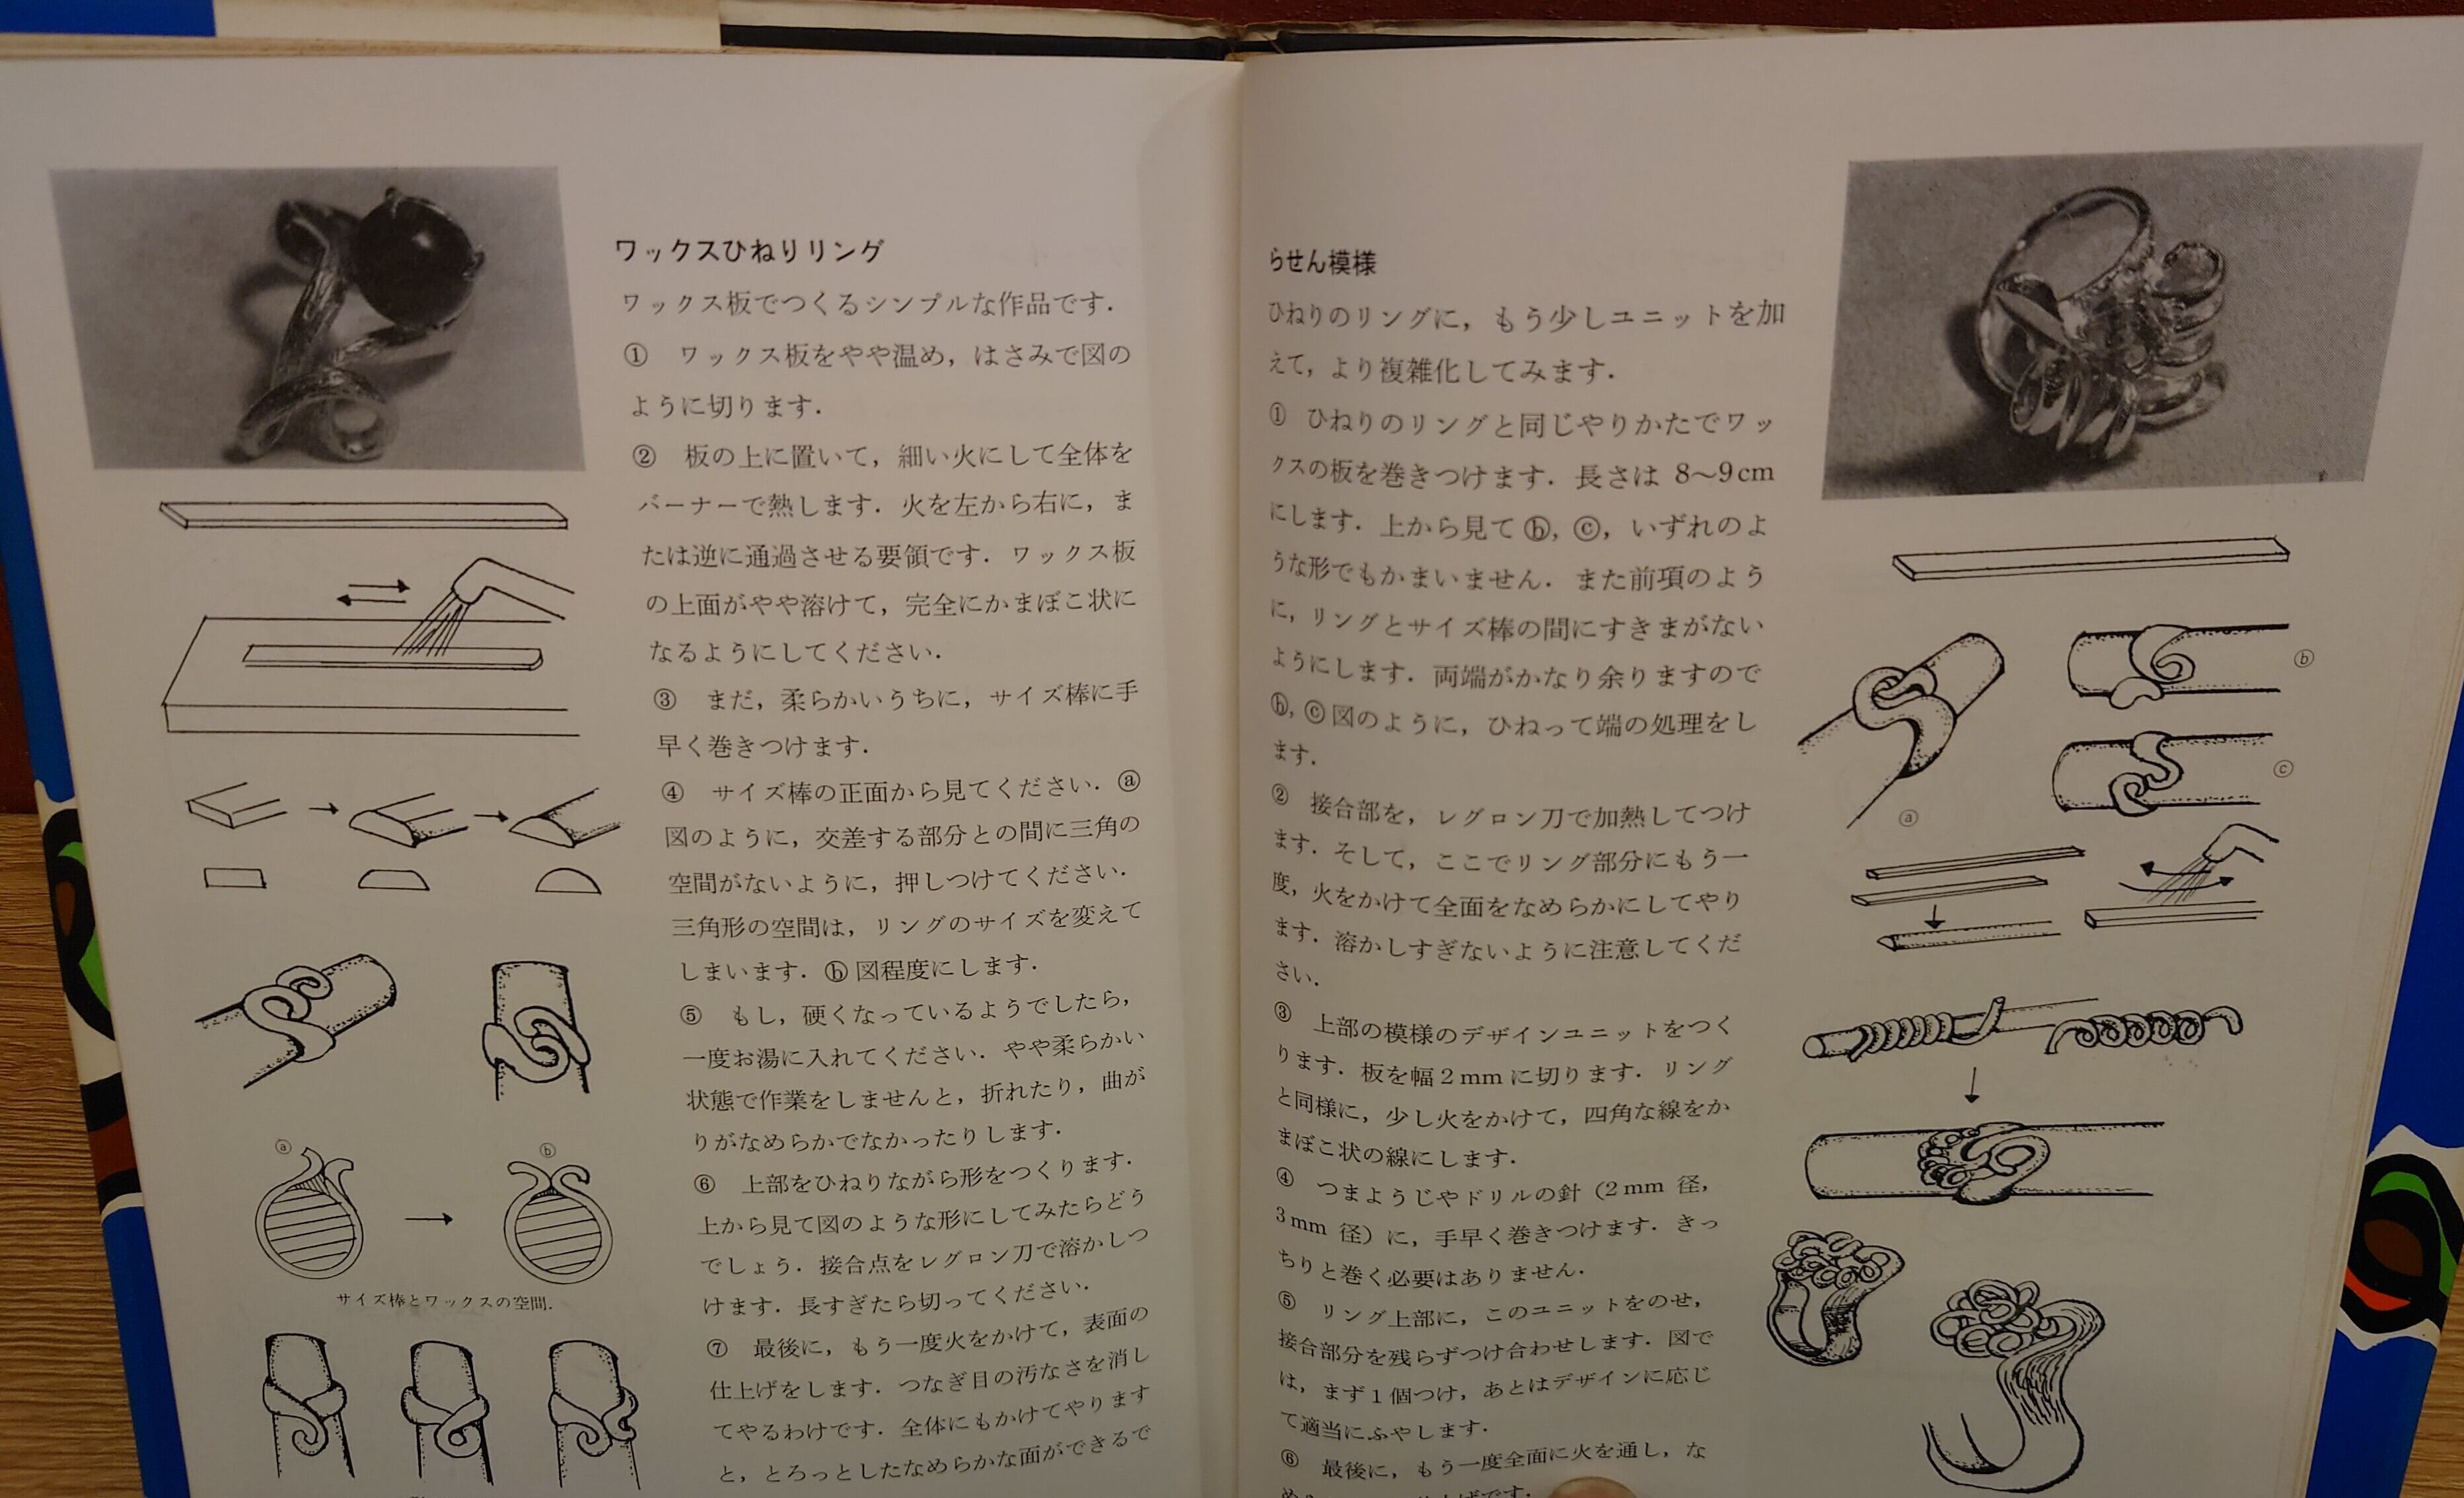 ワックスひねりリング
ワックス板でつくるシンプルな作品です．
① ワックス板をやや温め，はさみで図の
ように切ります．
② 板の上に置いて，細い火にして全体を
バーナーで熱します．火を左から右に，ま
たは逆に通過させる要領です．ワックス板
の上面がやや溶けて，完全にかまぼこ状に
なるようにしてください．
③ まだ，柔らかいうちに，サイズ棒に手
早く巻きつけます．
④ サイズ棒の正面から見てください．ⓐ
図のように，交差する部分との間に三角の
空間がないように，押しつけてください．
三角形の空間は，リングのサイズを変えて
しまいます．ⓑ図程度にします．
⑤ もし，硬くなっているようでしたら，
一度お湯に入れてください．やや柔らかい
状態で作業をしませんと，折れたり，曲が
りがなめらかでなかったりします．
⑥ 上部をひねりながら形をつくります．
上から見て図のような形にしてみたらどう
でしょう．接合点をレグロン刀で溶かしつ
けます．長すぎたら切ってください．
⑦ 最後に，もう一度火をかけて，表面の
仕上げをします．つなぎ目の汚なさを消し
てやるわけです．全体にもかけてやります
と，とろっとしたなめらかな面ができるで
ⓐ
ⓑ
サイズ棒とワックスの空間．
らせん模様
ひねりのリングに，もう少しユニットを加
えて，より複雑化してみます．
① ひねりのリングと同じやりかたでワッ
クスの板を巻きつけます．長さは 8〜9cm
にします．上から見てⓑ，ⓒ，いずれのよ
うな形でもかまいません．また前項のよう
に，リングとサイズ棒の間にすきまがない
ようにします．両端がかなり余りますので
ⓑ，ⓒ図のように，ひねって端の処理をし
ます．
② 接合部を，レグロン刀で加熱してつけ
ます．そして，ここでリング部分にもう一
度，火をかけて全面をなめらかにしてやり
ます．溶かしすぎないように注意してくだ
さい．
③ 上部の模様のデザインユニットをつく
ります．板を幅2mmに切ります．リング
と同様に，少し火をかけて，四角な線をか
まぼこ状の線にします．
④ つまようじやドリルの針（2mm 径，
3mm 径）に，手早く巻きつけます．きっ
ちりと巻く必要はありません．
⑤ リング上部に，このユニットをのせ，
接合部分を残らずつけ合わせします．図で
は，まず1個つけ，あとはデザインに応じ
て適当にふやします．
⑥ 最後に，もう一度全面に火を通し，な
ⓑ
ⓒ
ⓐ